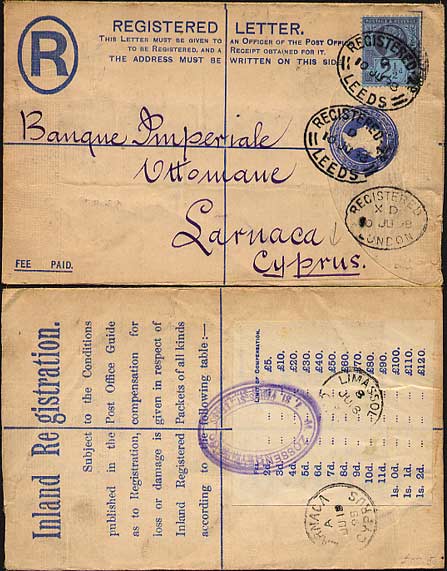 R
REGISTERED LETTER.
THIS LETTER MUST BE GIVEN TO AN OFFICER OF THE POST OFFICE
TO BE REGISTERED, AND A RECEIPT OBTAINED FOR IT.
THE ADDRESS MUST BE WRITTEN ON THIS SIDE
REGISTERED
LEEDS
REGISTERED
LEEDS
Banque Imperiale
Ottomane
Larnaca
Cyprus.
REGISTERED
X D
LONDON
FEE PAID.
Inland Registration.
Subject to the Conditions
published in the Post Office Guide
as to Registration, compensation for
loss or damage is given in respect of
Inland Registered Packets of all kinds
according to the following table:—
FEE. LIMIT OF COMPENSATION.
2d. £5.
3d. £10.
4d. £20.
5d. £30.
6d. £40.
7d. £50.
8d. £60.
9d. £70.
10d. £80.
11d. £90.
1s. 0d. £100.
1s. 1d. £110.
1s. 2d. £120.
LIMASSOL
LARNACA
A
CYPRUS